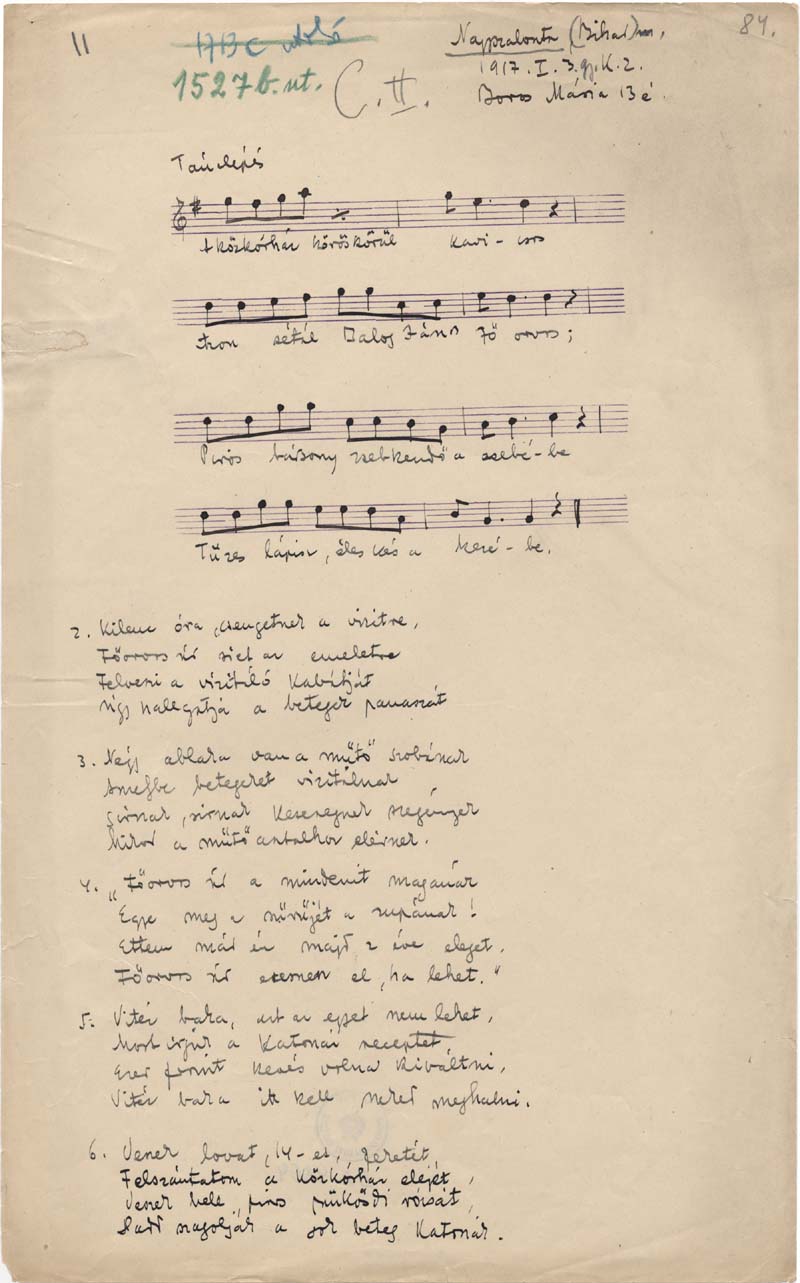 11
84.
1713 c utolsó
Nagyszalonta (Bihar) m.
1527 b. ut.
C. II.
1917. I. 3. gy. K. Z.
Boros Mária 13 é.
Tánclépés
A közkórház köröskörül kavi - csos
sétál Balog János Fő orvos;
Piros bársony zsebkendő a zsebé - be
Tüzes lápisz, éles kés a kezé - be.
2. Kilenc óra, csengetnek a vizitre,
Főorvos úr siet az emeletre
Felveszi a vizitáló kabátját
Úgy hallgatja a betegek panaszát
3. Négy ablaka van a műtő szobának
Amelybe betegeket vizitálnak
sirnak, keseregnek szegények
Mikor a műtőasztalhoz elérnek.
4. „Főorvos úr a mindenit magának
Egye meg a a zupának!
Ettem már én majd 2 éve eleget.
Főorvos úr eresszen el, ha lehet."
5. Vitéz baka, azt az egyet nem lehet,
Most írjuk a katonai receptet
Ezer forint kevés volna kiváltni,
Vitéz baka itt kell neked meghalni.
6. Veszek lovat, 14-et, feketét,
Felszántatom a Közkórház elejét,
Veszek bele piros pünkösdi rózsát,
Hadd szagolják a sok beteg Katonák.